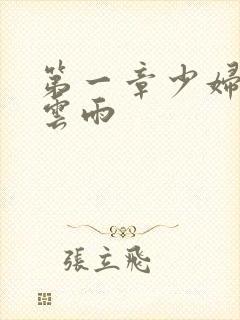 第一章少婦
雲雨
張立飛